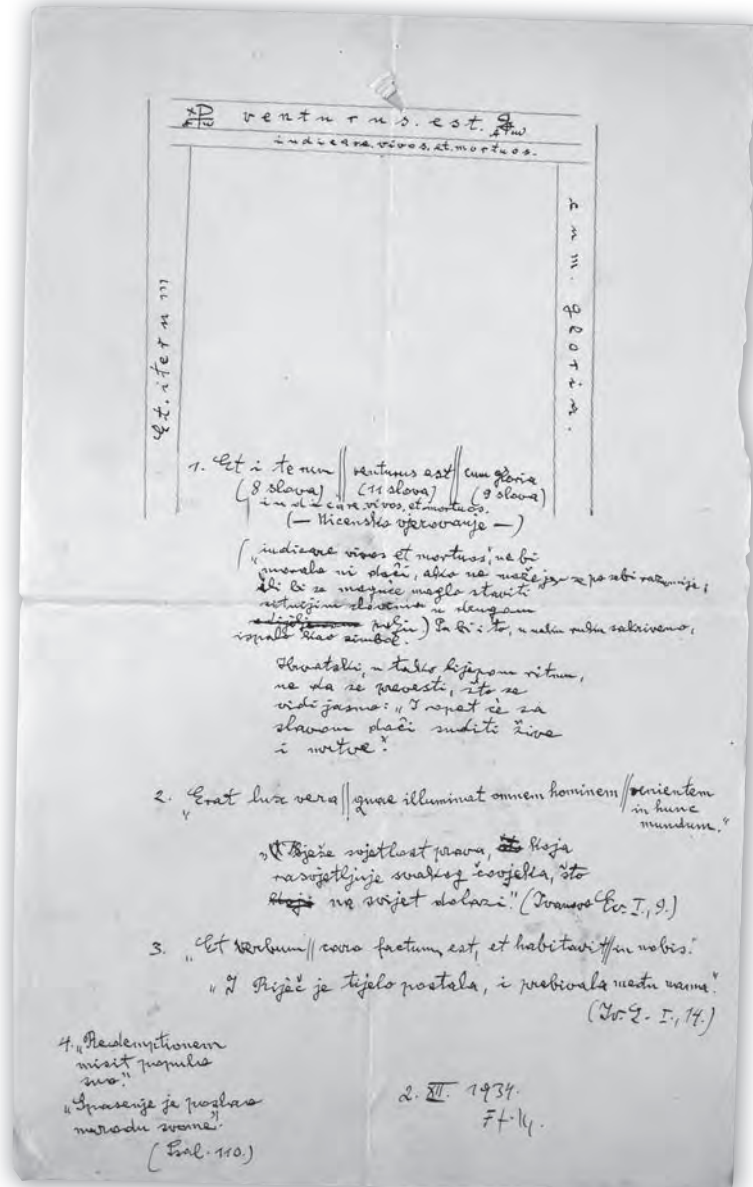 venturus. est.
iudicare. vivos. et. mortuos.
Et. iterum
cum. gloria.
1. Et i te rum || venturus est || cum gloria
(8 slova) (11 slova) (9 slova)
iudicare. vivos. et. mortuos.
(— Nicensko vjerovanje —)
(„iudicare vivos et mortuos“, ne bi
moralo ni doći, ako ne može jer se po sebi razumije;
ili bi se moguće moglo staviti
sitnijim slovima u drugom
polju) Pa bi i to, u neku ruku sakriveno,
ispalo kao simbol.
Hrvatski, u tako lijepom ritmu,
ne da se prevesti, što se
vidi jasno: „I opet će sa
slavom doći suditi žive
i mrtve“.
2. „Erat lux vera || quae illuminat omnem hominem || venientem
in hunc
mundum.“
„Bješe svjetlost prava, koja
rasvjetljuje svakog čovjeka, što
na svijet dolazi.“ (Ivanovo Ev. I., 9.)
3. „Et verbum || caro factum est, et habitavit || in nobis.“
„I Riječ je tijelo postala, i prebivala među nama“.
(Iv. I., 14.)
4. „Redemptionem
misit populo
suo.“
„Spasenje je poslao
narodu svome“
(Psal. 110.)
2. XII. 1934.